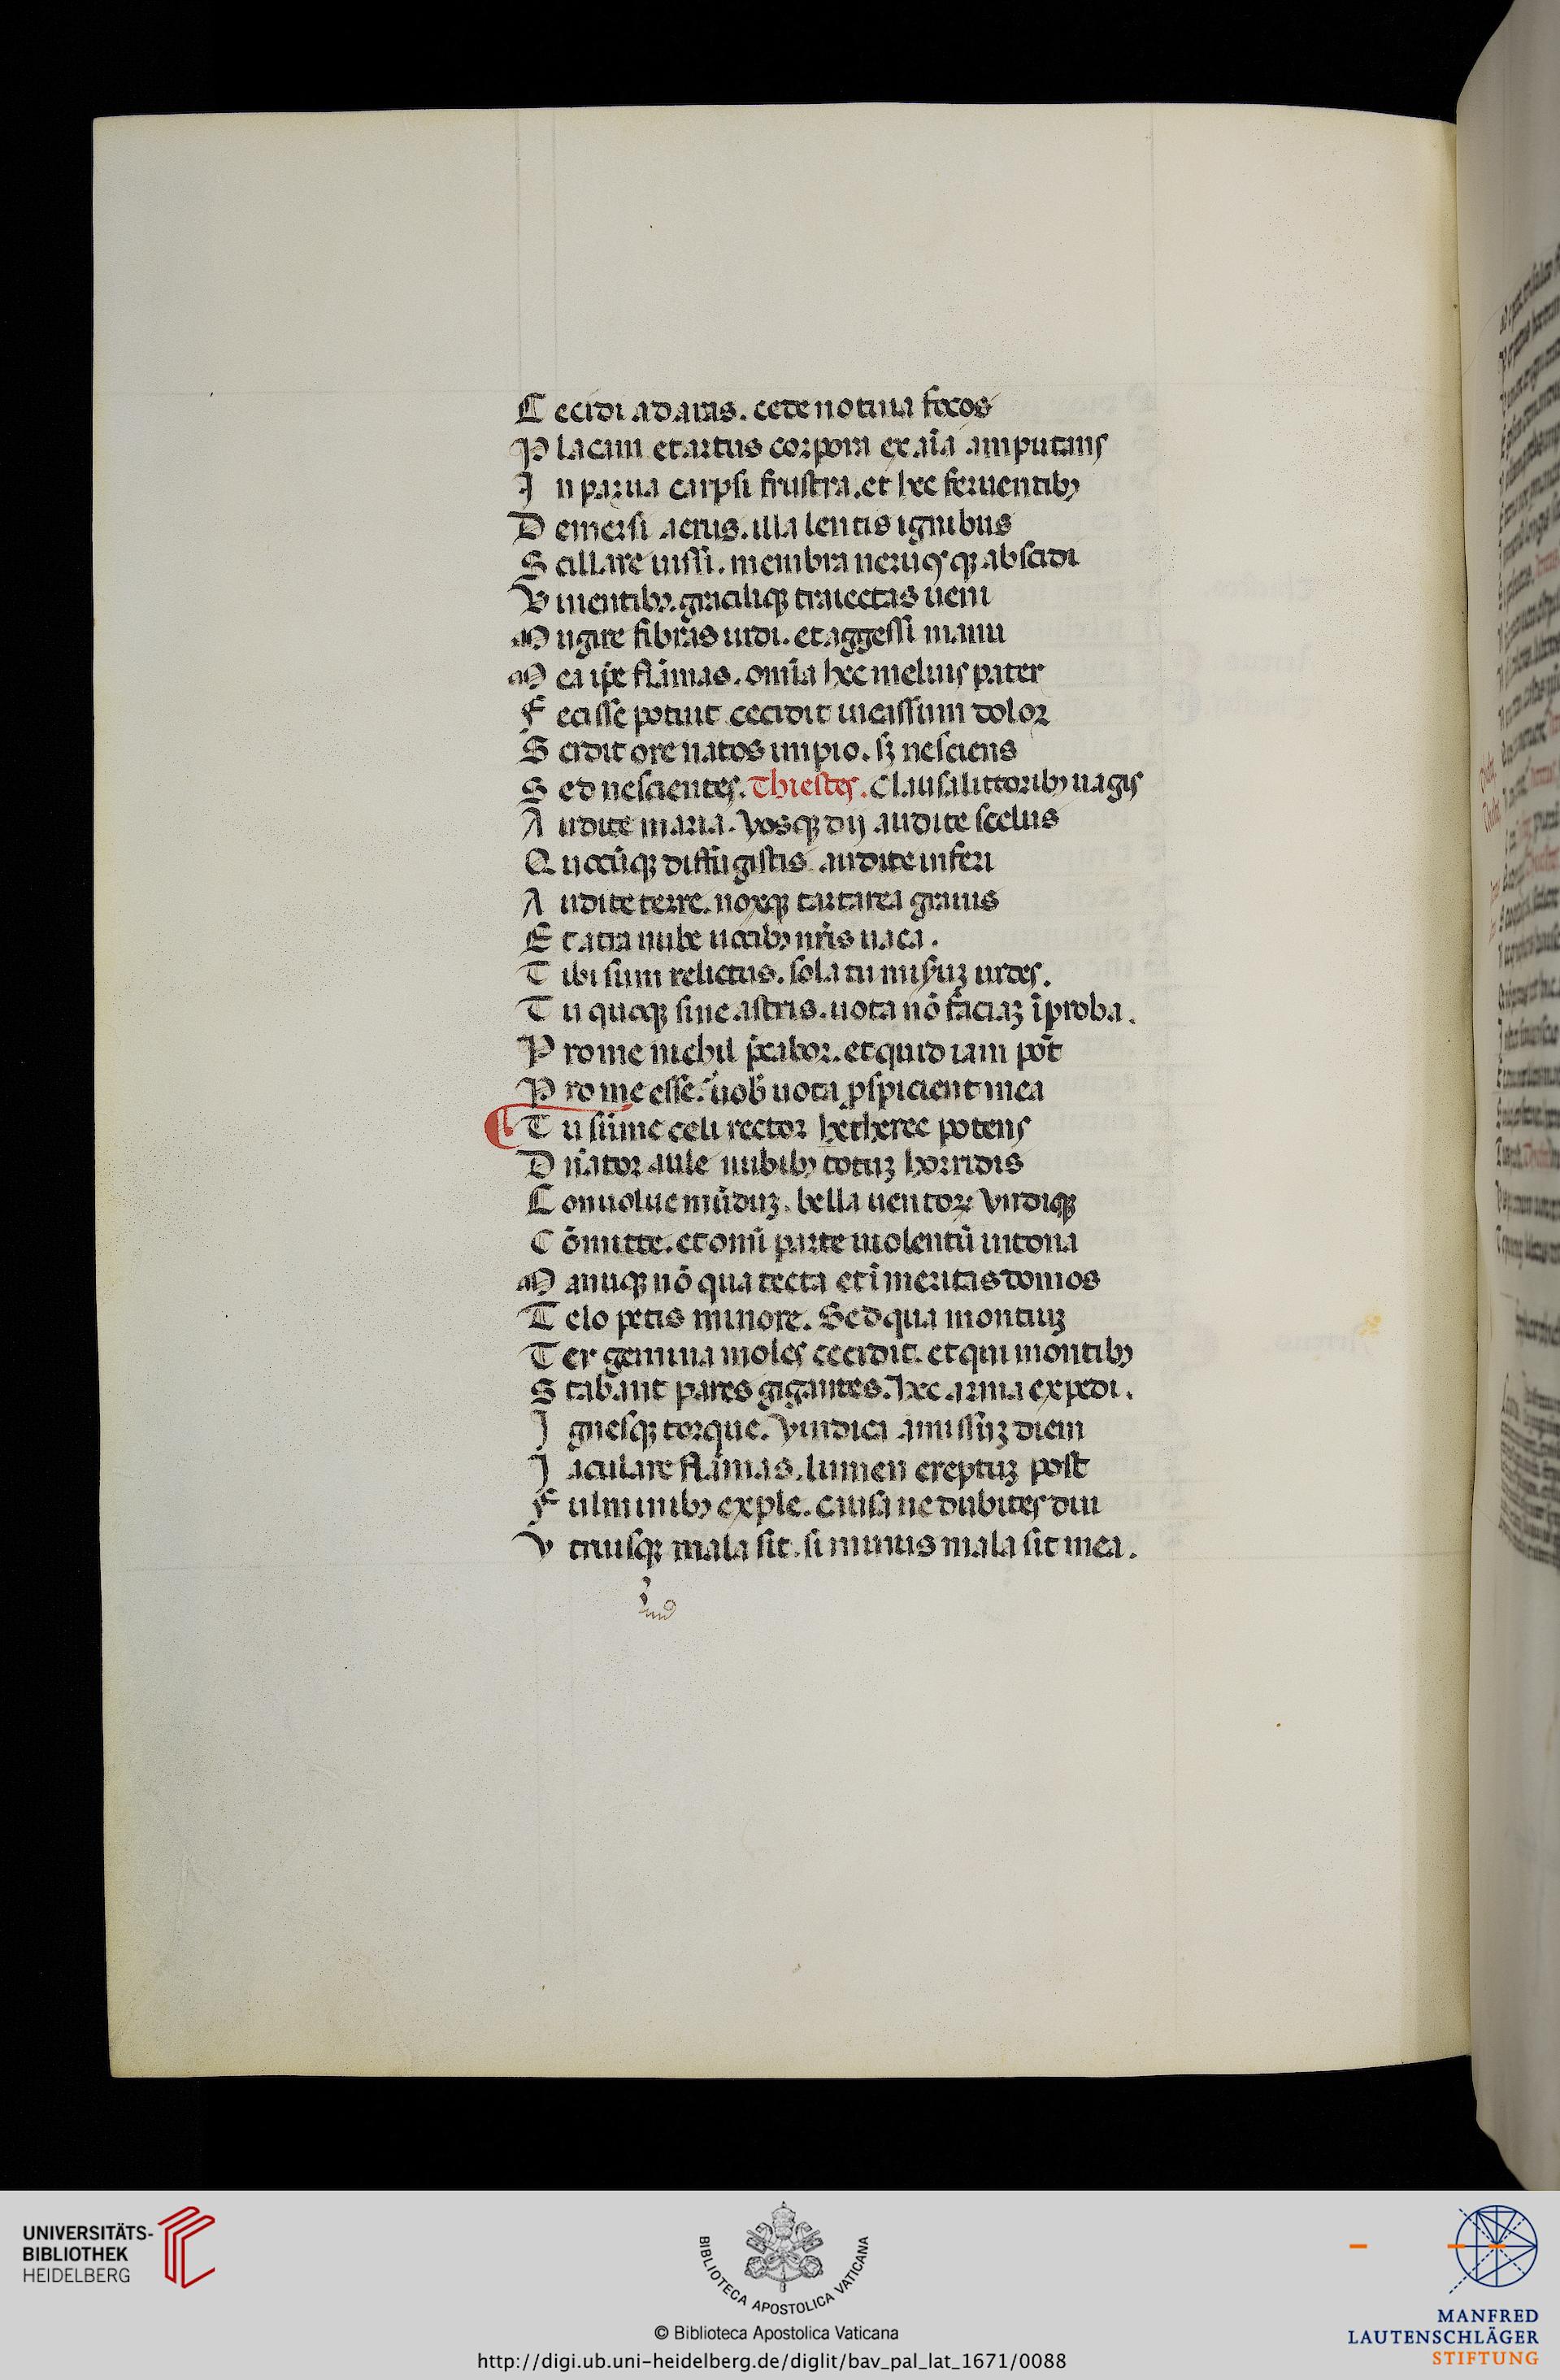 C ecidi ad aras. cede uotiua focos
P lacaui et artus corpora exaīa amputans
I n parua carpsi frustra. et hec feruentibꝫ
D emersi aenis. illa lentis ignibus
S tillare iussi. membra neruosqꝫ abscidi
V iuentibꝫ. gracilisqꝫ traiectas ueru
M ugire fibras uidi. et aggessi manu
M ea ip̄e flāmas. om̄ia hec melius pater
F ecisse potuit cecidit incassum dolor
S cidit ore natos impio. sꝫ nesciens
S ed nescientes. Thiestes. Clausa littoribꝫ uagis
A udite maria. Vosqꝫ dij audite scelus
Q uocūqꝫ diffugistis audite inferi
A udite terre. noxqꝫ tartarea grauis
E t atra nube uocibꝫ nr̄is uaca.
T ibi sum relictus. sola tu miseruꝫ uides.
T u quoqꝫ sine astris. uota nō faciaꝫ īproba.
P ro me nichil p̄cabor. et quid iam pōt
P ro me esse. uob̄ uota ꝓspicient mea
T u sūme celi rector hethereę potens
D n̄ator aule nubibꝫ totuꝫ horridis
C onuolue mūduꝫ. bella uentoꝝ undiqꝫ
C ōmitte. et omī parte uiolentū intona
M anuqꝫ nō qua tecta et īmeritas domos
T elo petis minore. Sed qua montiuꝫ
T er gemina moles cecidit. et qui montibꝫ
S tabant pares gigantes. hec arma expedi.
I gnesqꝫ torque. Vindica amissuꝫ diem
I aculare flāmas. lumen ereptuꝫ post
F ulminibꝫ exple. causa ne dubites diu
V triusqꝫ mala sit. si minus mala sit mea.
UNIVERSITÄTS-
BIBLIOTHEK
HEIDELBERG
BIBLIOTECA APOSTOLICA VATICANA
© Biblioteca Apostolica Vaticana
http://digi.ub.uni-heidelberg.de/diglit/bav_pal_lat_1671/0088
MANFRED
LAUTENSCHLÄGER
STIFTUNG